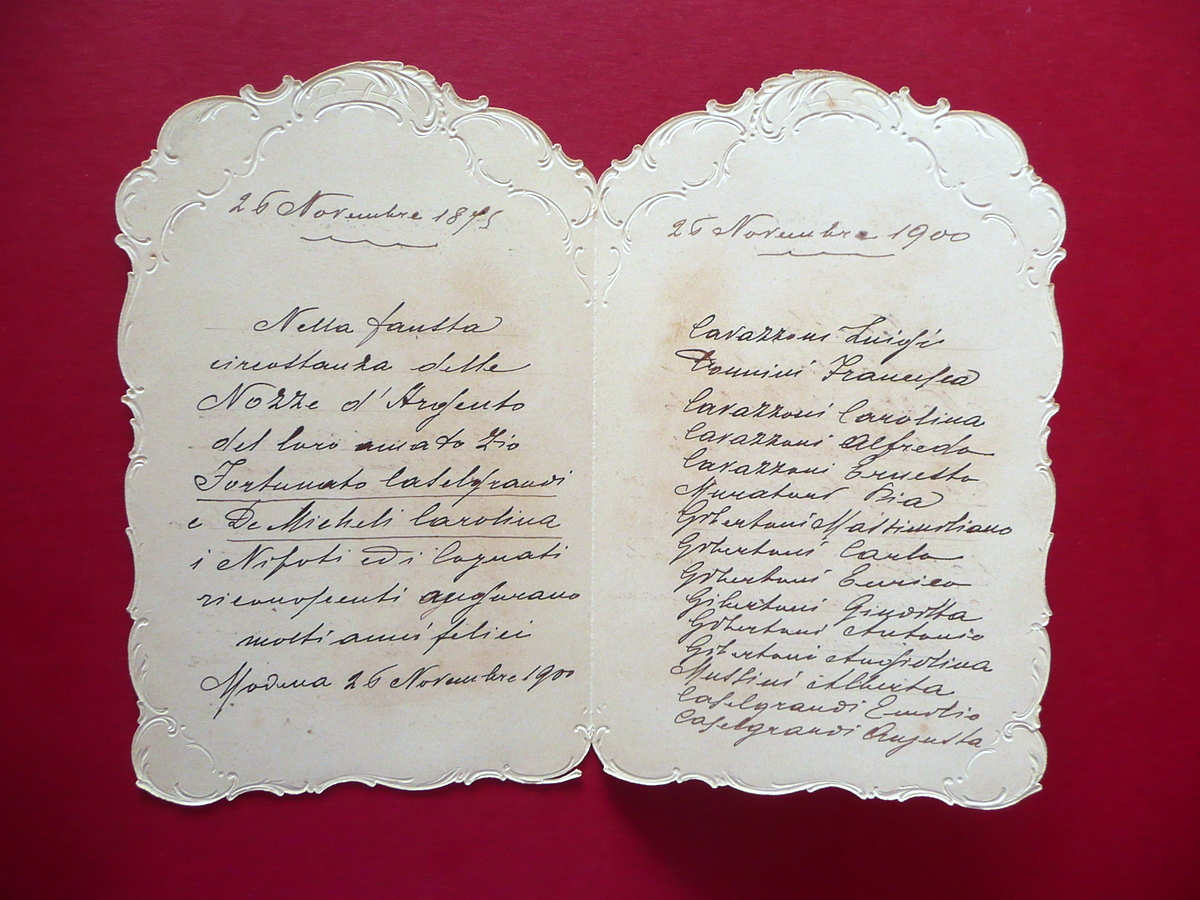 26 Novembre 1875
Nella fausta
circostanza delle
Nozze d'Argento
del loro amato Zio
Fortunato Caselgrandi
e De Micheli Carolina
i Nipoti ed i Cognati
riconoscenti augurano
molti anni felici
Modena 26 Novembre 1900
26 Novembre 1900
Cavazzoni Luigi
Francesca
Cavazzoni Carolina
Cavazzoni Alfredo
Cavazzoni Ernesto
Muratori Pia
Gibertoni Massimiliano
Gibertoni Carlo
Gibertoni Enrico
Gibertoni Giuditta
Gibertoni Antonio
Gibertoni Angiolina
Mussini Alberta
Caselgrandi Emilio
Caselgrandi Augusta